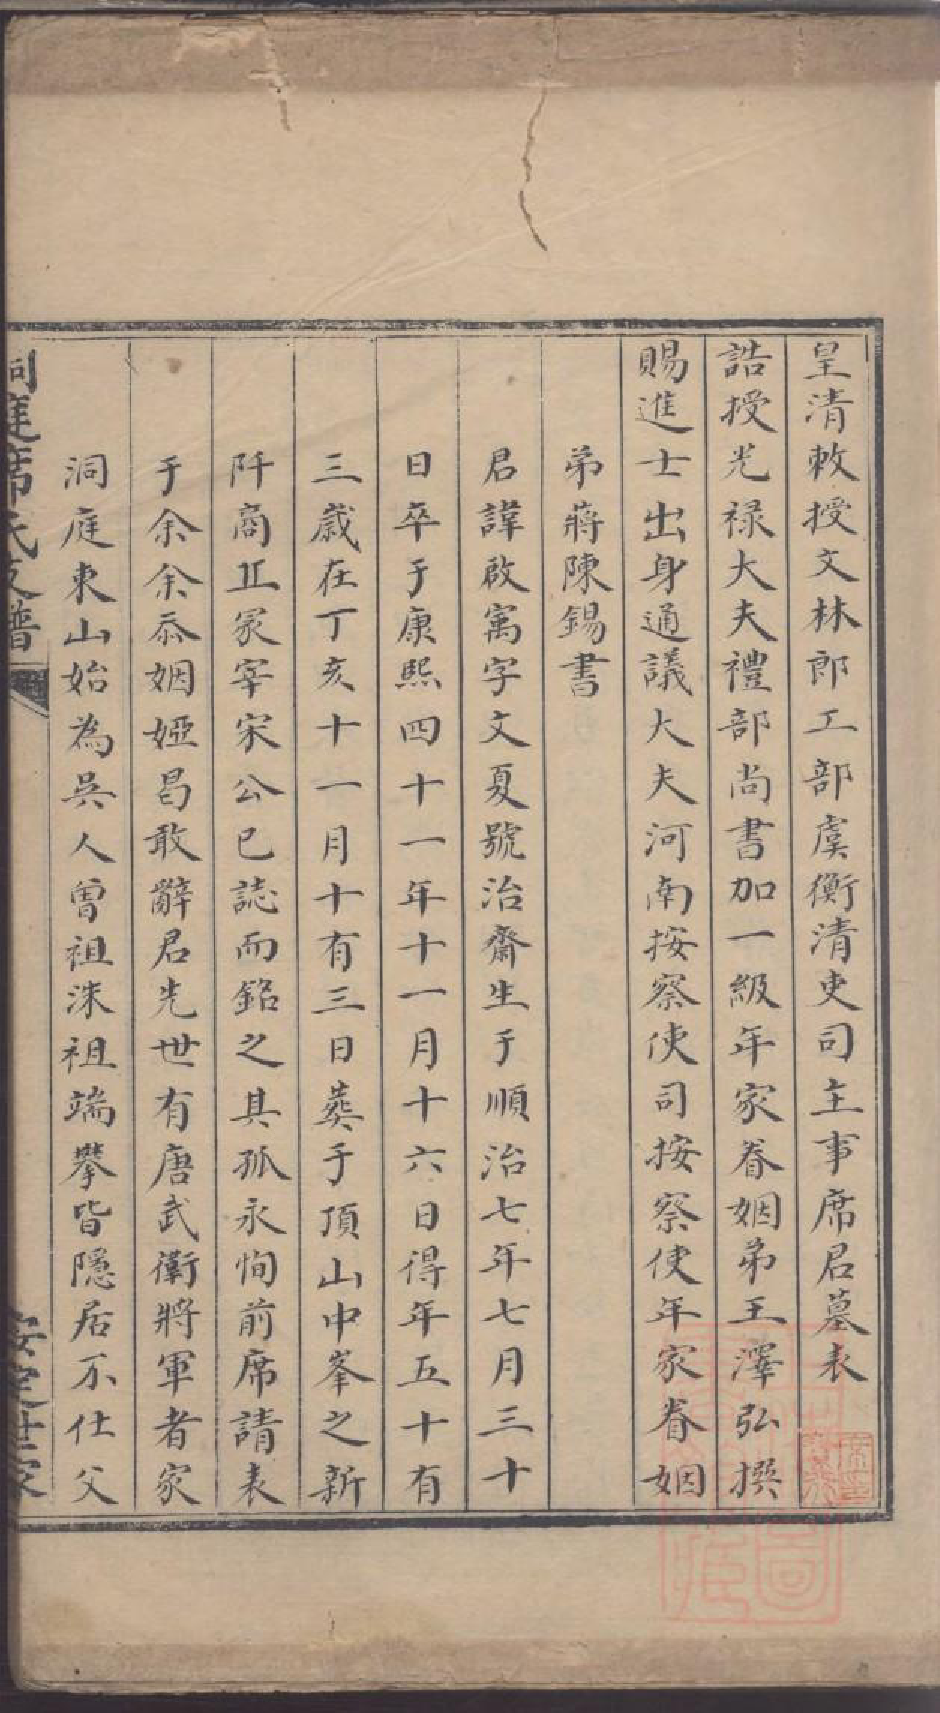 皇清敕授文林郎工部虞衡清吏司主事席君墓表
誥授光禄大夫禮部尚書加一級年家眷姻弟王澤弘撰
賜進士出身通議大夫河南按察使司按察使年家眷姻
弟蔣陳錫書
君諱啟寓字文夏號治齋生于順治七年七月三十
日卒于康熙四十一年十一月十六日得年五十有
三歲在丁亥十一月十有三日葬于頂山中峯之新
阡商丘冢宰宋公已誌而銘之其孤永恂前席請表
于余余忝姻婭曷敢辭君先世有唐武衛將軍者家
洞庭東山始為吳人曾祖洙祖端攀皆隱居不仕父
洞庭席氏支譜
安定世家